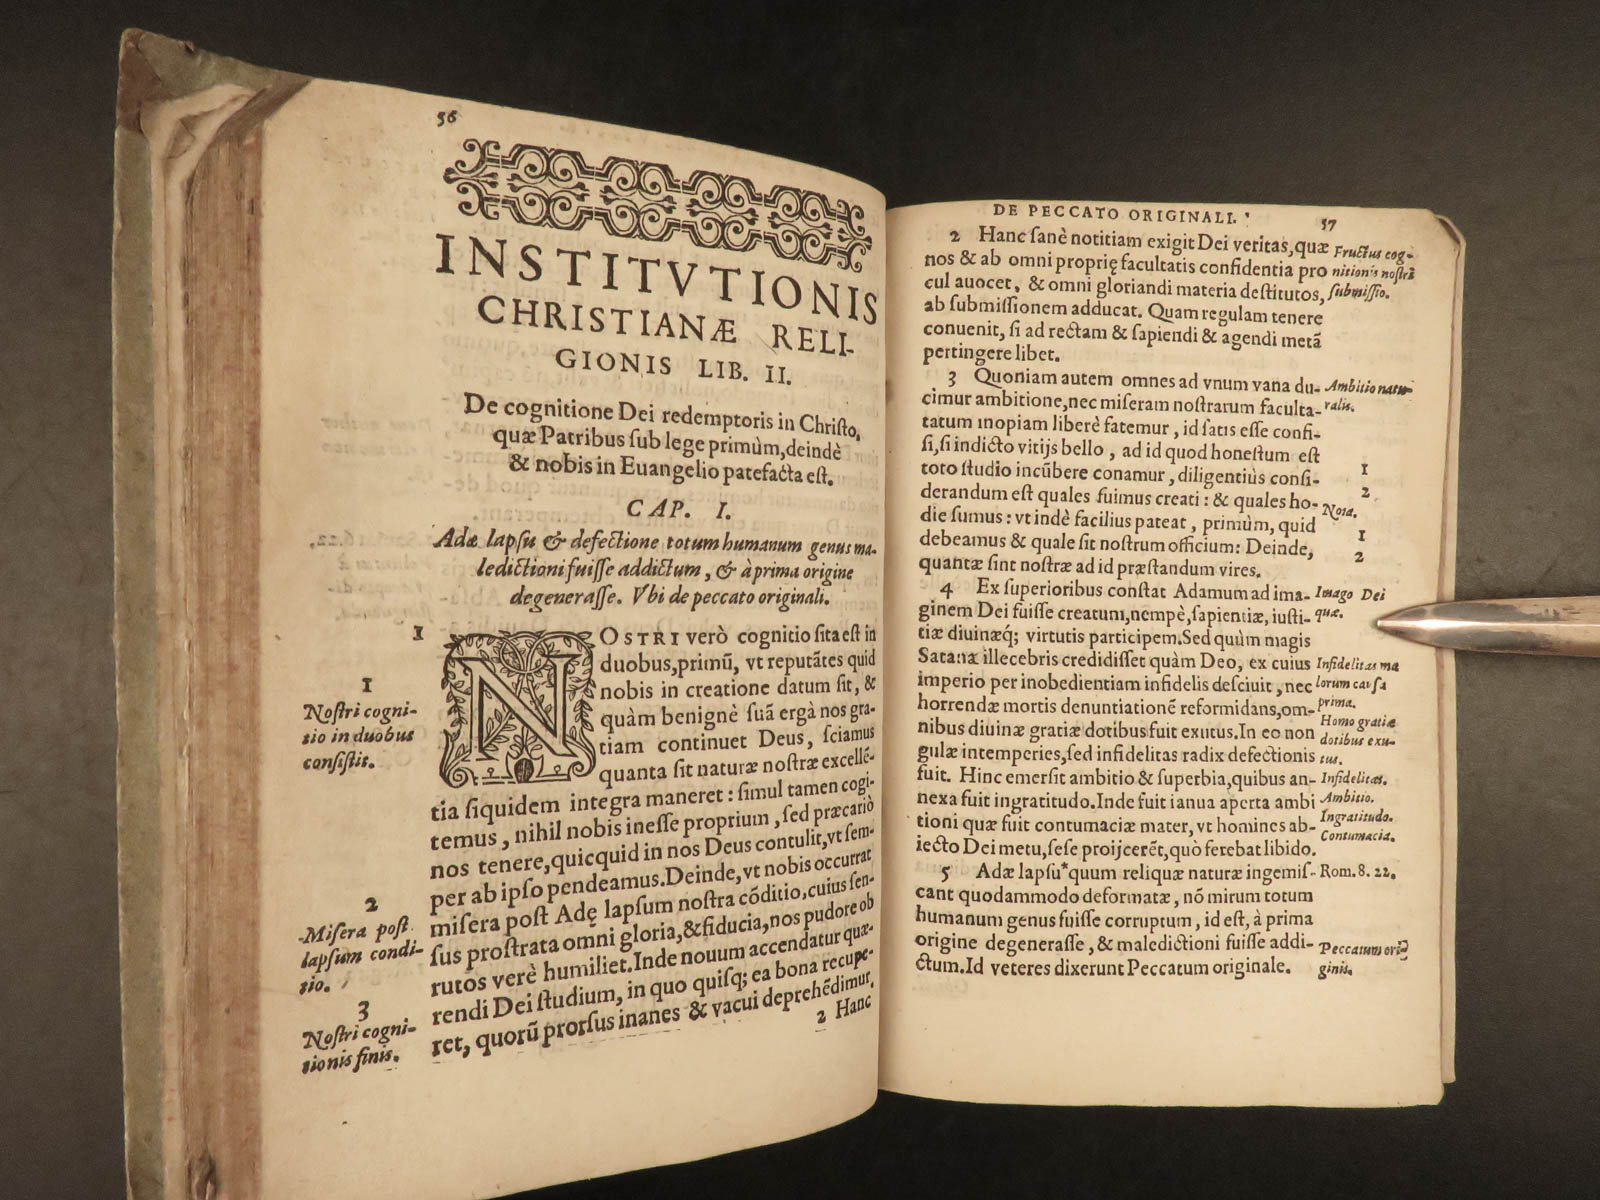 56
INSTITVTIONIS
CHRISTIANÆ RELI-
GIONIS LIB. II.
De cognitione Dei redemptoris in Chriſto,
quæ Patribus ſub lege primùm, deindè
& nobis in Euangelio patefacta eſt.
CAP. I.
Adæ lapſu & defectione totum humanum genus ma-
ledictioni fuiſſe addictum, & à prima origine
degeneraſſe. Vbi de peccato originali.
1 NOSTRI verò cognitio ſita eſt in
duobus, primũ, vt reputãtes quid
nobis in creatione datum ſit, &
quàm benignè ſuã ergà nos gra-
tiam continuet Deus, ſciamus
quanta ſit naturæ noſtræ excellẽ-
tia ſiquidem integra maneret: ſimul tamen cogi-
temus, nihil nobis ineſſe proprium, ſed præcariò
nos tenere, quicquid in nos Deus contulit, vt ſem-
per ab ipſo pendeamus. Deinde, vt nobis occurrat
miſera poſt Adę lapſum noſtra cõditio, cuius ſen-
ſus proſtrata omni gloria, & fiducia, nos pudore ob
rutos verè humiliet. Inde nouum accendatur quæ-
rendi Dei ſtudium, in quo quiſq; ea bona recupe-
ret, quorũ prorſus inanes & vacui deprehẽdimur.
2 Hanc
1
Noſtri cogni-
tio in duobus
conſiſtit.
2
Miſera poſt
lapſum condi-
tio.
3
Noſtri cogni-
tionis finis.
DE PECCATO ORIGINALI. 57
2 Hanc ſanè notitiam exigit Dei veritas, quæ
nos & ab omni proprię facultatis confidentia pro
cul auocet, & omni gloriandi materia deſtitutos,
ab ſubmiſſionem adducat. Quam regulam tenere
conuenit, ſi ad rectam & ſapiendi & agendi metã
pertingere libet.
3 Quoniam autem omnes ad vnum vana du-
cimur ambitione, nec miſeram noſtrarum faculta-
tatum inopiam liberè fatemur, id ſatis eſſe confi-
ſi, ſi indicto vitijs bello, ad id quod honeſtum eſt
toto ſtudio incũbere conamur, diligentiùs conſi-
derandum eſt quales fuimus creati: & quales ho-
die ſumus: vt indè facilius pateat, primùm, quid
debeamus & quale ſit noſtrum officium: Deinde,
quantæ ſint noſtræ ad id præſtandum vires.
4 Ex ſuperioribus conſtat Adamum ad ima-
ginem Dei fuiſſe creatum, nempè, ſapientiæ, iuſti-
tiæ diuinæq; virtutis participem. Sed quùm magis
Satanæ illecebris credidiſſet quàm Deo, ex cuius
imperio per inobedientiam infidelis deſciuit, nec
horrendæ mortis denuntiationẽ reformidans, om-
nibus diuinæ gratiæ dotibus fuit exutus. In eo non
gulæ intemperies, ſed infidelitas radix defectionis
fuit. Hinc emerſit ambitio & ſuperbia, quibus an-
nexa fuit ingratitudo. Inde fuit ianua aperta ambi
tioni quæ fuit contumaciæ mater, vt homines ab-
iecto Dei metu, ſeſe proijcerẽt, quò ferebat libido.
5 Adæ lapſu* quum reliquæ naturæ ingemiſ-
cant quodammodo deformatæ, nõ mirum totum
humanum genus fuiſſe corruptum, id eſt, à prima
origine degeneraſſe, & maledictioni fuiſſe addi-
ctum. Id veteres dixerunt Peccatum originale.
Fructus cog-
nitionis noſtri
ſubmiſſio.
Ambitio natu-
ralis.
1
2
Nota.
1
2
Imago Dei
quæ.
Infidelitas ma
lorum cauſa
prima.
Homo gratiæ
dotibus exu-
tus.
Infidelitas.
Ambitio.
Ingratitudo.
Contumacia.
Rom. 8. 22.
Peccatum ori-
ginis.